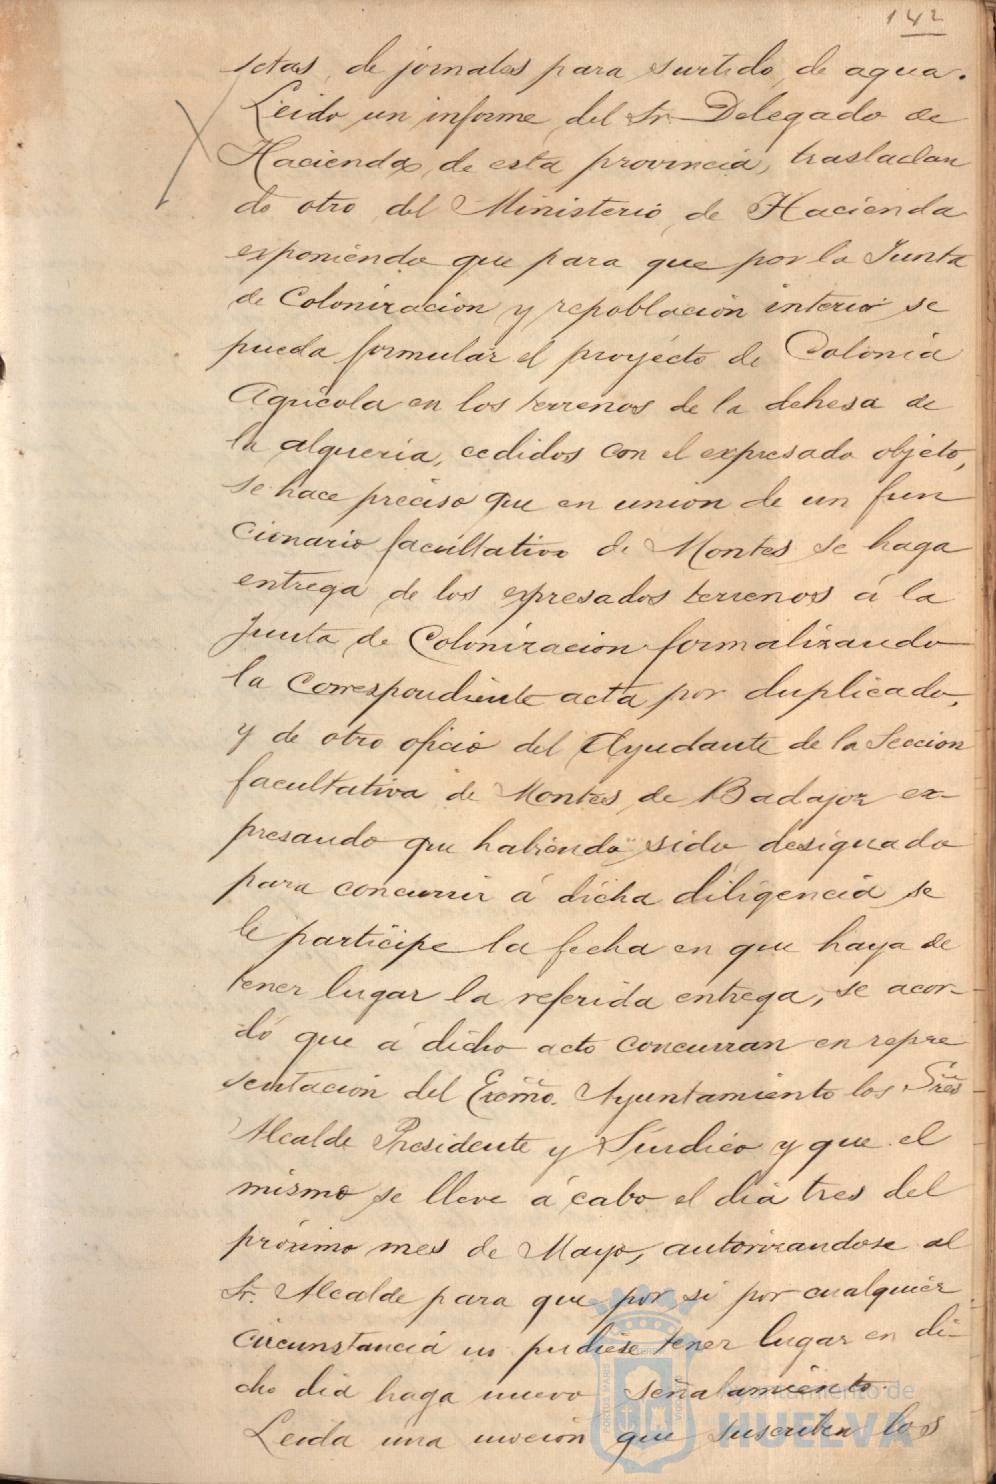 142
setas, de jornales para surtido, de agua.
Leido un informe del Sr. Delegado de
Hacienda, de esta provincia, trasladan
do otro del Ministerio de Hacienda
exponiendo que para que por la Junta
de Colonizacion y repoblacion interior se
pueda formular el proyécto de Colonia
Agricola en los terrenos de la dehesa de
la alqueria, cedidos con el expresado objeto,
se hace preciso que en union de un fun
cionario facultativo de Montes se haga
entrega de los expresados terrenos á la
Junta de Colonizacion formalizando
la correspondiente acta por duplicado,
y de otro oficio del Ayudante de la Seccion
facultativa de Montes de Badajoz ex-
presando que habiendo sido designado
para concurrir á dicha diligencia se
le participe la fecha en que haya de
tener lugar la referida entrega, se acor-
dó que á dicho acto concurran en repre
sentacion del Excmo. Ayuntamiento los Sres
Alcalde Presidente y Sindico y que el
mismo se lleve á cabo el dia tres del
próximo mes de Mayo, autorizandose al
Sr. Alcalde para que por si por cualquier
circunstancia no pudiese tener lugar en di-
cho dia haga nuevo señalamiento.
Leida una mocion que suscriben los
Ayuntamiento de
HUELVA